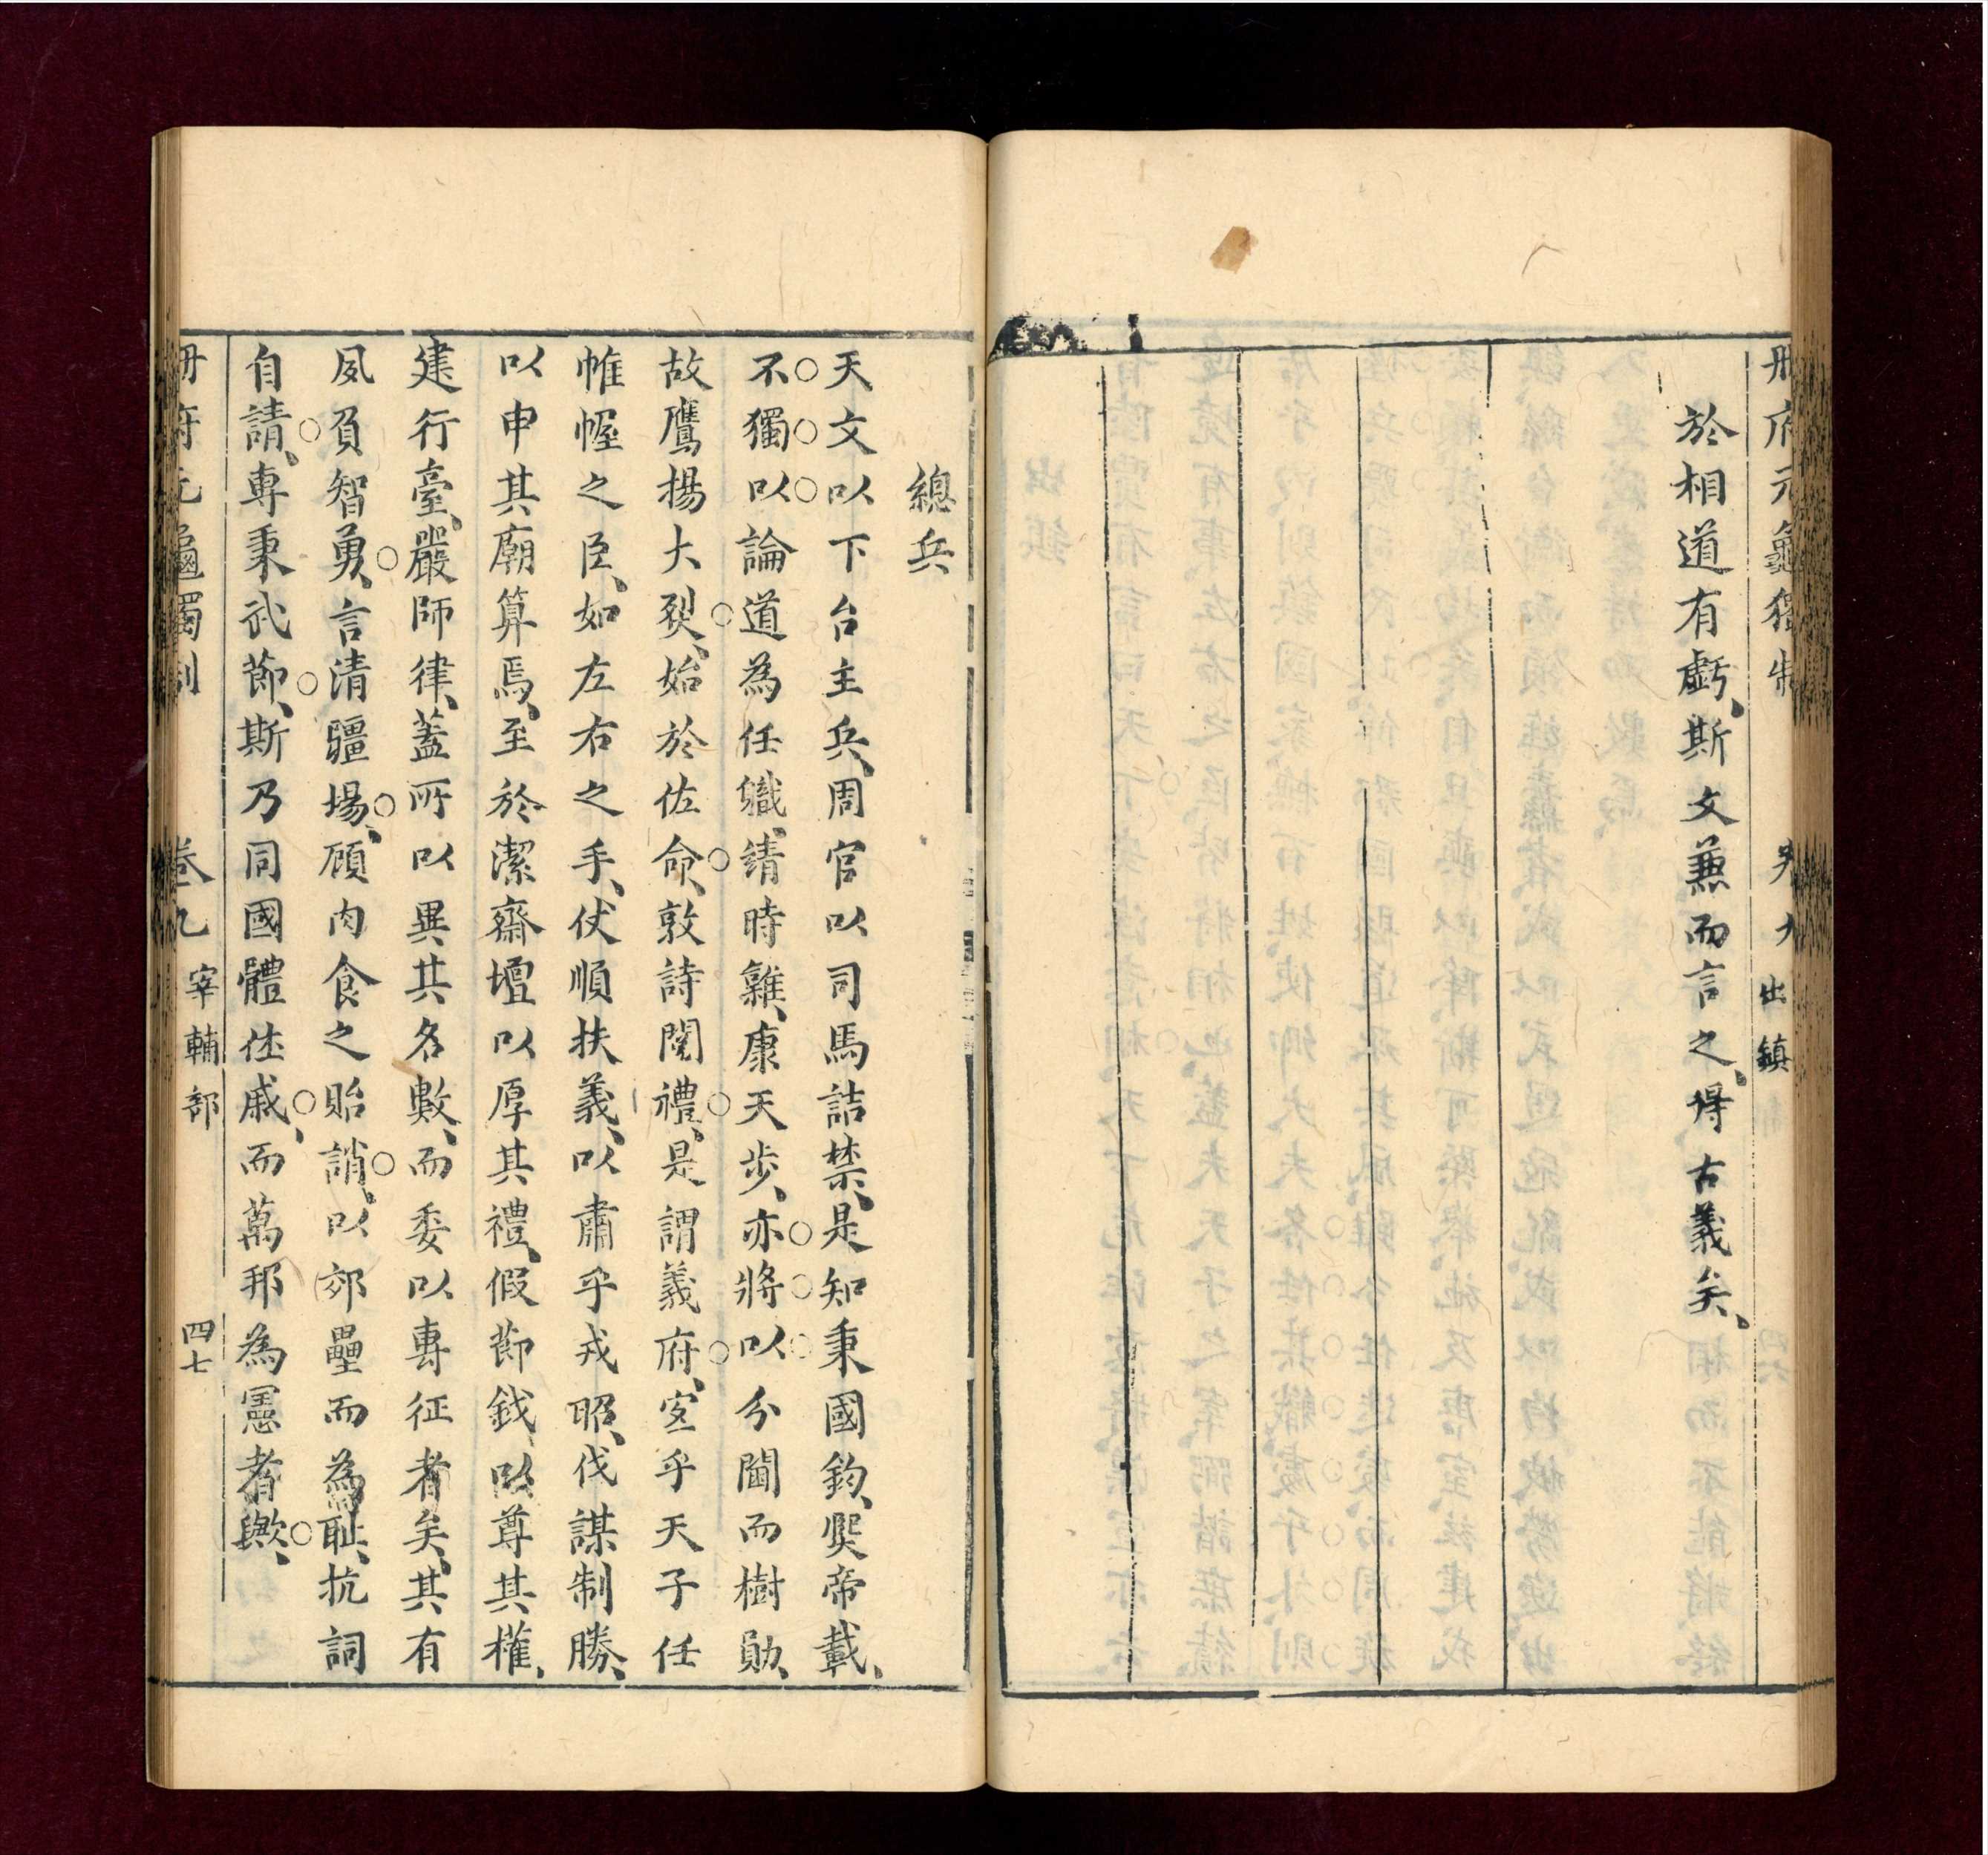 冊府元龜獨制 卷九 出鎮
於相道有虧、斯文兼而言之、得古義矣、
總兵
天文以下台主兵、周官以司馬詰禁、是知秉國鈞、熙帝載、
不獨以論道為任職、績時雍、康天步、亦將以分閫而樹勛、
故鷹揚大烈、始於佐命、敦詩閱禮、是謂義府、寔乎天子任
帷幄之臣、如左右之手、仗順扶義、以肅乎戎昭、伐謀制勝、
以申其廟算焉、至於潔齋壇以厚其禮、假節鉞以尊其權、
建行臺、嚴師律、蓋所以異其名數、而委以專征者矣、其有
夙負智勇、言清疆場、顧肉食之貽誚、以郊壘而為恥、抗詞
自請、專秉武節、斯乃同國體休戚、而萬邦為憲者歟、
冊府元龜獨制 卷九 宰輔部 四七